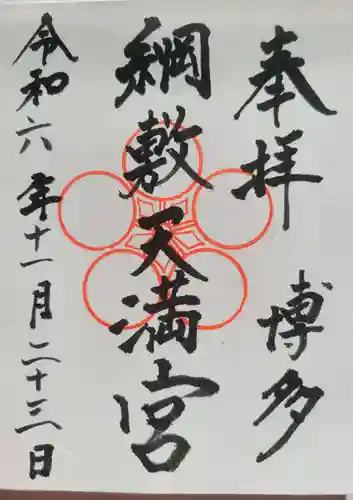 奉拝 博多
綱敷天満宮
令和六年十一月二十三日